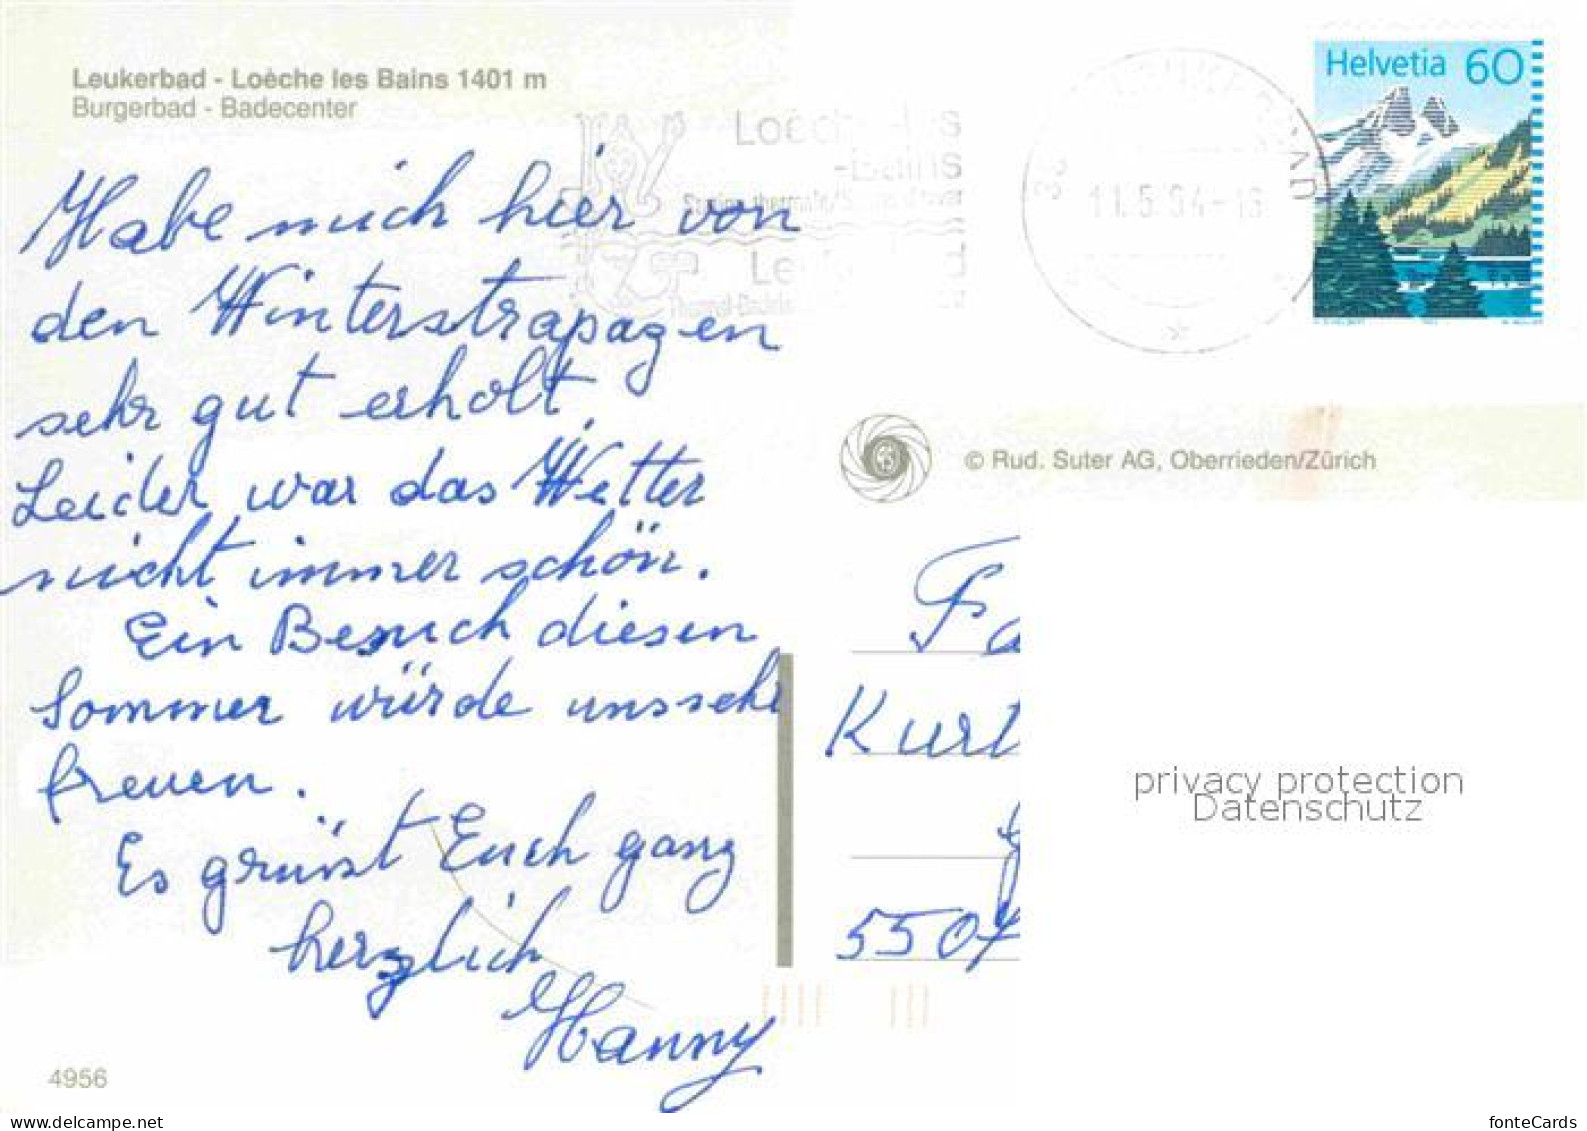 Leukerbad - Loèche les Bains 1401 m
Burgerbad - Badecenter
Habe mich hier von
den Winterstrapazen
sehr gut erholt.
Leider war das Wetter
nicht immer schön.
Ein Besuch diesen
Sommer würde uns seh
freuen.
Es grüsst Euch ganz
herzlich
Hanny
4956
Loèche-les
-Bains
Station thermale
11.5.94-18
Helvetia 60
© Rud. Suter AG, Oberrieden/Zürich
Fa
Kurt
5507
privacy protection
Datenschutz
delcampe.net
fonteCards